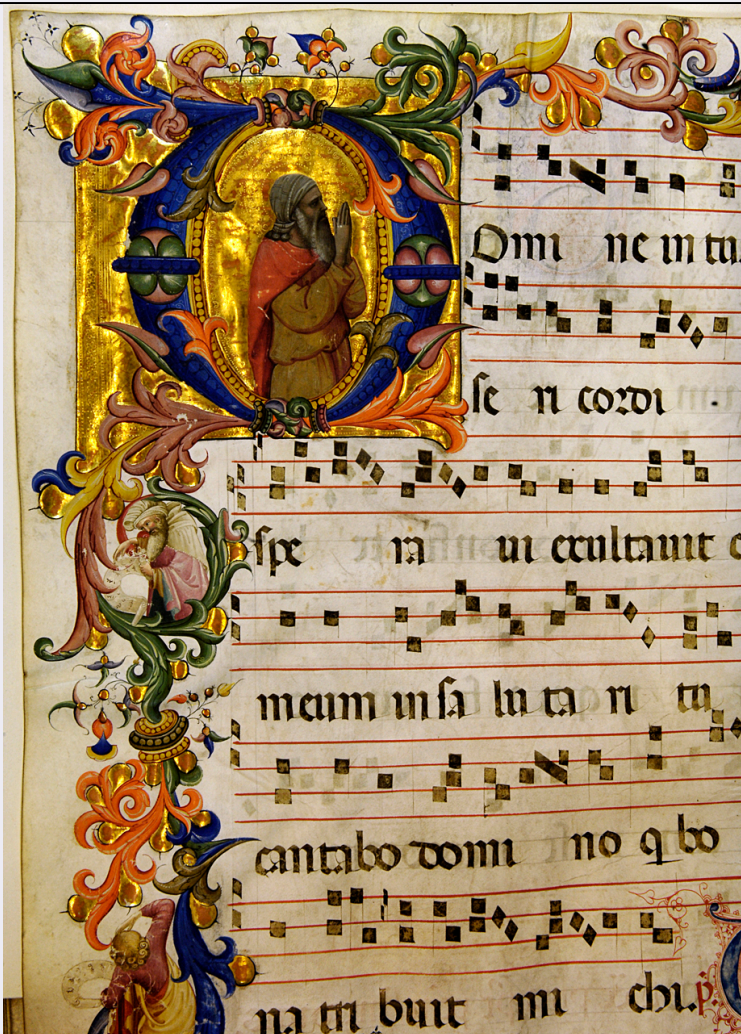 Domi ne in tu
se ri cordi
spe ra ui exultauit c
meum in sa lu ta ri tu
cantabo domi no q bo
na tri buit mi chi. p.